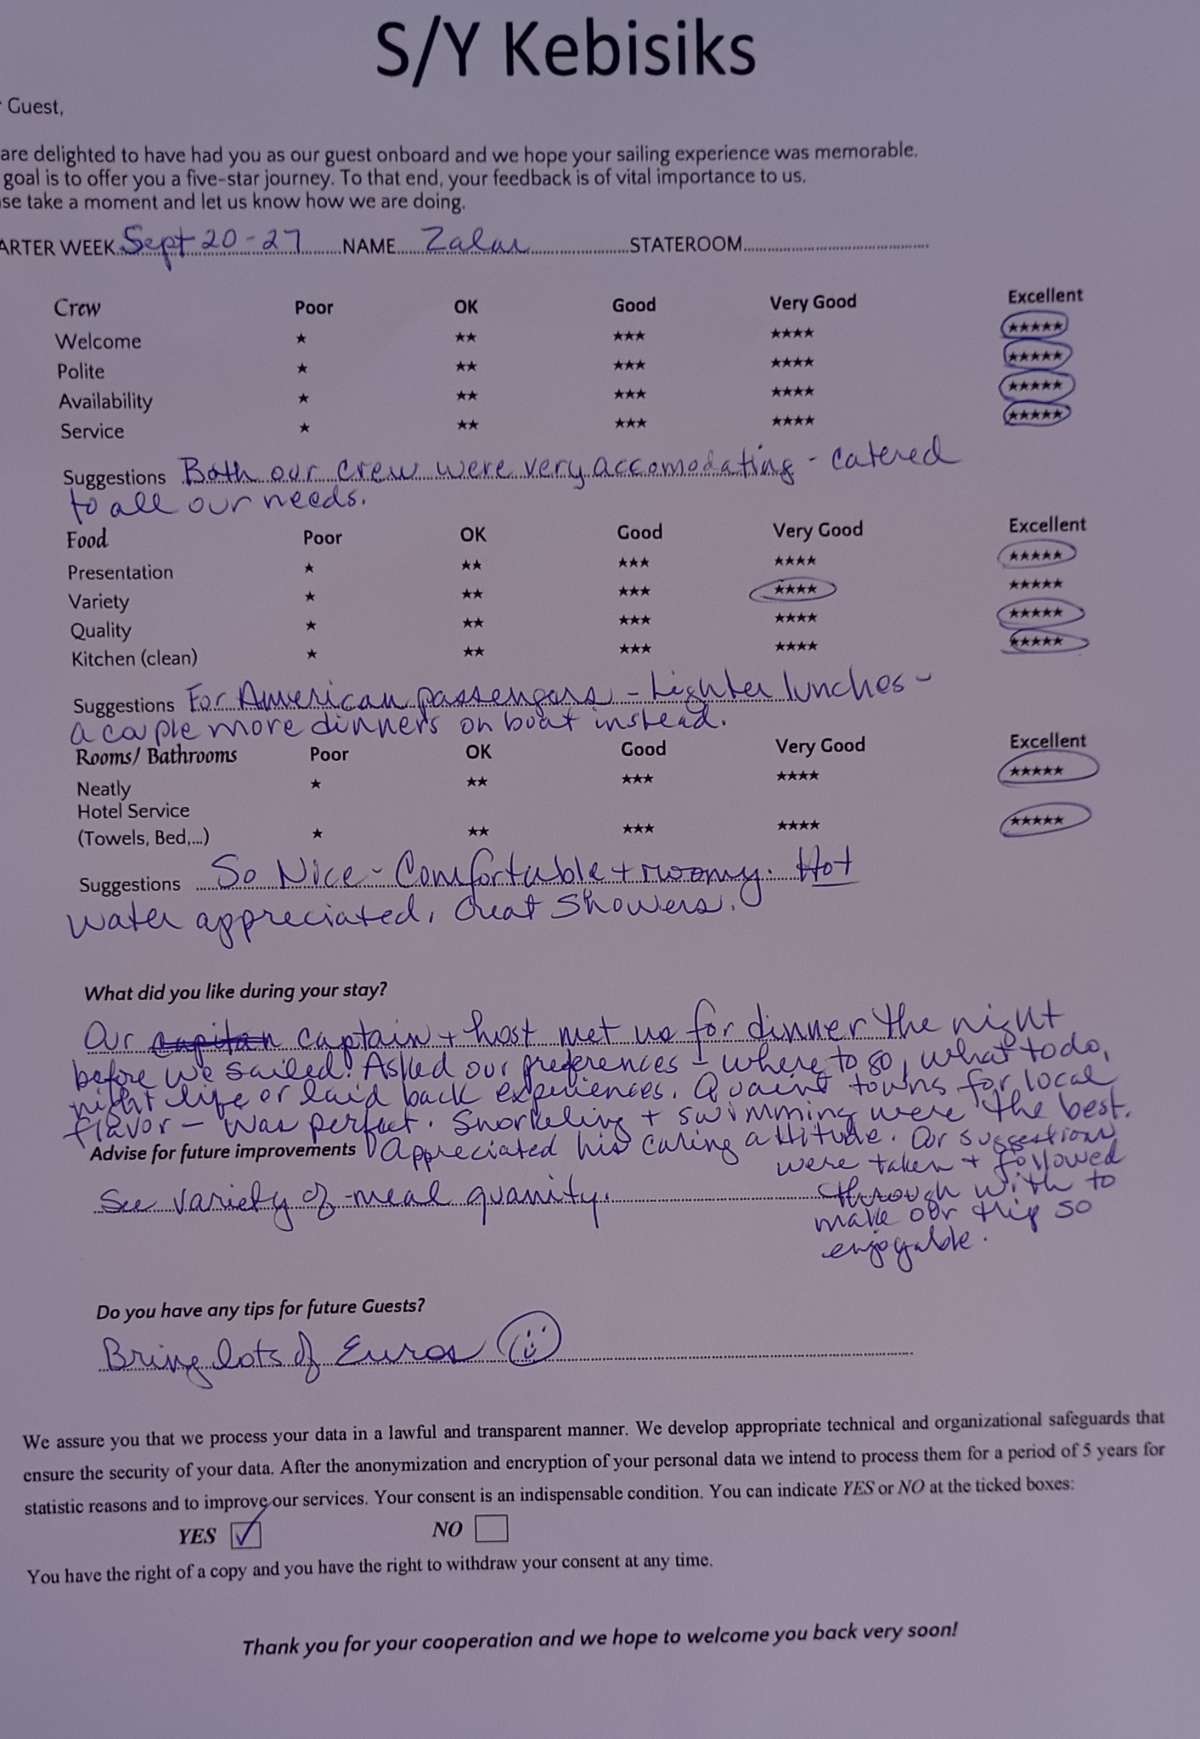 S/Y Kebisiks
r Guest,
are delighted to have had you as our guest onboard and we hope your sailing experience was memorable.
goal is to offer you a five-star journey. To that end, your feedback is of vital importance to us.
se take a moment and let us know how we are doing.
ARTER WEEK Sept 20-27 NAME Zalar STATEROOM
Crew Poor OK Good Very Good Excellent
Welcome ★ ★★ ★★★ ★★★★ ★★★★★
Polite ★ ★★ ★★★ ★★★★ ★★★★★
Availability ★ ★★ ★★★ ★★★★ ★★★★★
Service ★ ★★ ★★★ ★★★★ ★★★★★
Suggestions Both our crew were very accomodating - catered
to all our needs.
Food Poor OK Good Very Good Excellent
Presentation ★ ★★ ★★★ ★★★★ ★★★★★
Variety ★ ★★ ★★★ ★★★★ ★★★★★
Quality ★ ★★ ★★★ ★★★★ ★★★★★
Kitchen (clean) ★ ★★ ★★★ ★★★★ ★★★★★
Suggestions For American passengers - Lighter lunches -
a couple more dinners on boat instead.
Rooms/ Bathrooms Poor OK Good Very Good Excellent
Neatly ★ ★★ ★★★ ★★★★ ★★★★★
Hotel Service
(Towels, Bed,...) ★ ★★ ★★★ ★★★★ ★★★★★
Suggestions So Nice - Comfortable + roomy. Hot
water appreciated, Great Showers.
What did you like during your stay?
Our capitan captain + host met us for dinner the night
before we sailed! Asked our preferences - where to go, what to do,
night life or laid back experiences. Quaint towns for local
flavor - was perfect. Snorkeling + swimming were the best.
Advise for future improvements Appreciated his caring attitude. Our suggestions
were taken + followed
See variety of meal quanity. through with to
make our trip so
enjoyable.
Do you have any tips for future Guests?
Bring lots of Euros
We assure you that we process your data in a lawful and transparent manner. We develop appropriate technical and organizational safeguards that
ensure the security of your data. After the anonymization and encryption of your personal data we intend to process them for a period of 5 years for
statistic reasons and to improve our services. Your consent is an indispensable condition. You can indicate YES or NO at the ticked boxes:
YES ✓ NO
You have the right of a copy and you have the right to withdraw your consent at any time.
Thank you for your cooperation and we hope to welcome you back very soon!